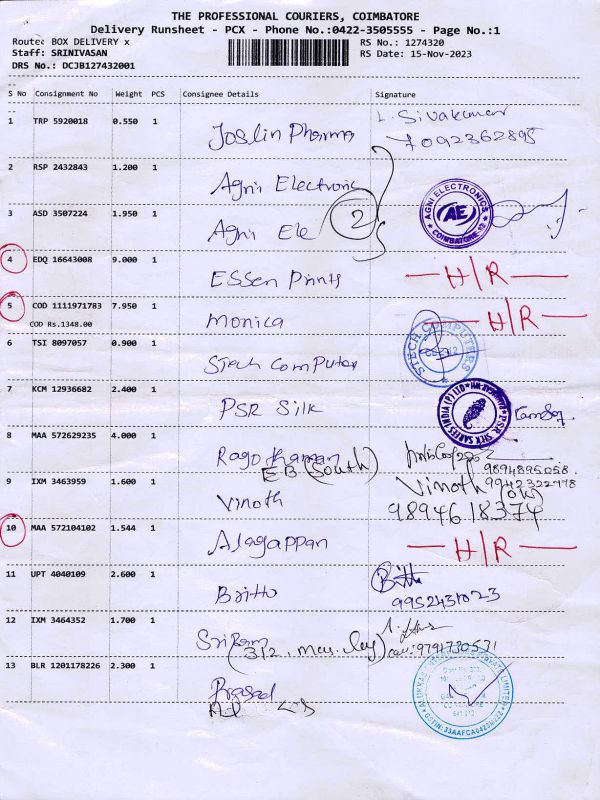 THE PROFESSIONAL COURIERS, COIMBATORE
Delivery Runsheet - PCX - Phone No.:0422-3505555 - Page No.:1
Route: BOX DELIVERY x
RS No.: 1274320
Staff: SRINIVASAN
RS Date: 15-Nov-2023
DRS No.: DCJB127432001
S No Consignment No Weight PCS Consignee Details Signature
1 TRP 5920018 0.550 1 Joslin Pharma L. Sivakumar
7092362895
2 RSP 2432843 1.200 1 Agni Electronic
3 ASD 3507224 1.950 1 Agni Ele 2 AGNI ELECTRONICS AE COIMBATORE-12
4 EDQ 16643008 9.000 1 ESSen Prints H/R
5 COD 1111971783 7.950 1 Monica H/R
COD Rs.1348.00
6 TSI 8097057 0.900 1 Stech Computer STECH COMPUTERS
7 KCM 12936682 2.400 1 PSR Silk PSR SILK SAREES INDIA (P) LTD
8 MAA 572629235 4.000 1 Ragothaman 9894895058
EB (South) 9942322778
9 IXM 3463959 1.600 1 Vinoth Vinoth
9894618374
10 MAA 572104102 1.544 1 Alagappan H/R
11 UPT 4040109 2.600 1 Britto Britto
9952431023
12 IXM 3464352 1.700 1 Sriram
9791730571
13 BLR 1201178226 2.300 1 Prasad